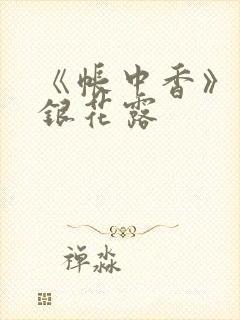 《帐中香》
銀花露
禅淼